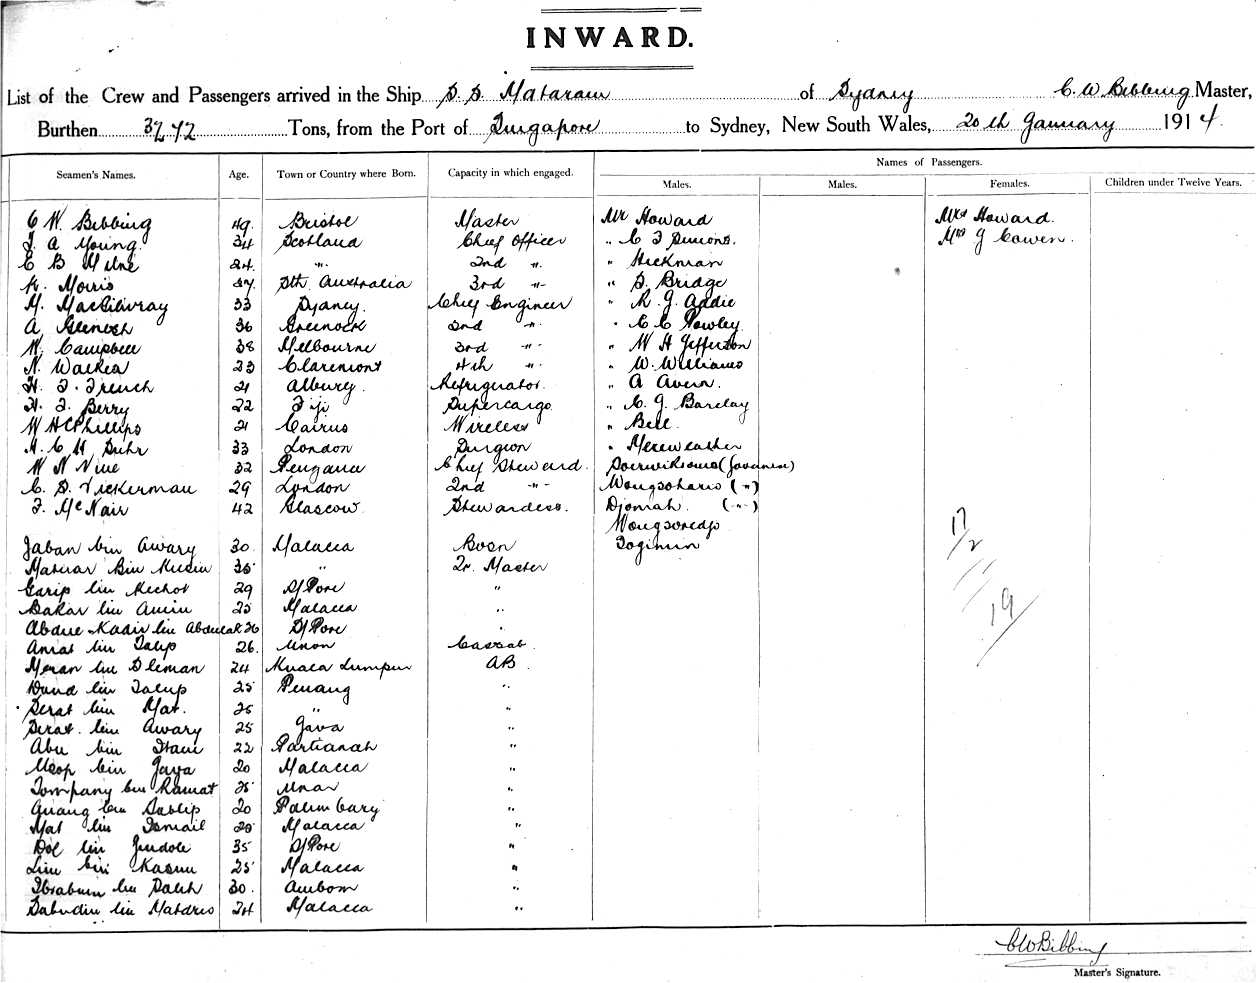 INWARD.
List of the Crew and Passengers arrived in the Ship S.S. Mataram of Sydney C. W Bibbing Master,
Burthen 3272 Tons, from the Port of Singapore to Sydney, New South Wales, 20th January 1914.
Seamen's Names. Age. Town or Country where Born. Capacity in which engaged. Names of Passengers.
Males. Males. Females. Children under Twelve Years.
C W. Bibbing 49. Bristol Master Mr Howard Mrs Howard.
J. A Young. 34 Scotland Chief Officer " C F Simons. Mrs J Cowen.
C B Milne 24. " 2nd " " Hickman
K. Morris 27. Sth Australia 3rd " " S. Bridge
M. MacGilvray 33 Sydney. Chief Engineer " R. J. Addie
A 36 Greenock 2nd " " C C Powley.
W. Campbell 38 Melbourne 3rd " " W H Jefferson
N. Walker 23 Claremont 4th " " W. Williams
H. F. French 21 Albury. Refrigerator. " A Avern.
H. F. Berry 22 Fiji Supercargo " C. J. Barclay
W H C Phillips 21 Cairns Wireless " Bell
H. C H Suhr 33 London Surgeon " Merewether
W N Nine 32 Chief Steward. (Javanese)
C. S. Vickerman 29 London 2nd " Wongsokario (")
F. McNair 42 Glascow Stewardess. Djomah. (")
Wongsoredjo
Jaban bin Awary 30. Malacca Bosn Toginin
Bin 35 " Qr. Master
Garip bin Kechot 29 S/Pore "
Bakar bin Amin 25 Malacca "
Abdul Kadir bin 26 S/Pore "
Amat bin Talip 26. Cassab.
Meran bin Sleman 24 Kuala Lumpur AB.
Daud bin Talup 25 Penang "
Serat bin Mat. 25 " "
Serat. bin Awary 25 Java "
Abu bin 22 "
bin Jaya 20 Malacca "
Tompany bin Ramat 25 "
bin 20 "
Mat bin Ismail 20 Malacca "
Dol bin 35 S/Pore "
bin Kassim 25 Malacca "
Ibrahim bin Saleh 30. Ambom "
bin 24 Malacca "
17/2
19/
CWBibbing
Master's Signature.